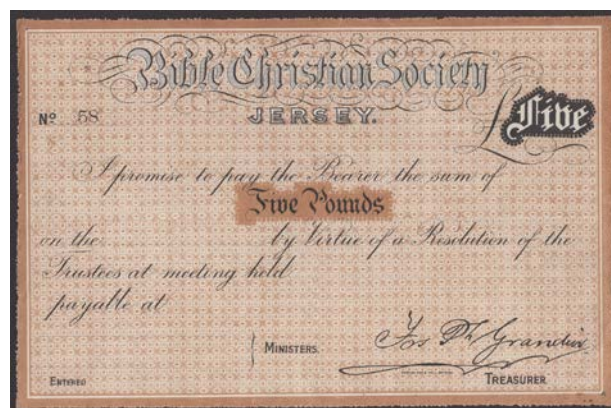 Bible Christian Society
JERSEY.
Nº 58
£ Five
I promise to pay the Bearer the sum of
Five Pounds
on the by Virtue of a Resolution of the
Trustees at meeting held
payable at
MINISTERS.
Jos Ph Grandin
ENTERED
TREASURER